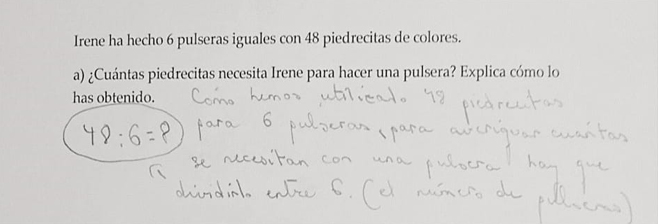 Irene ha hecho 6 pulseras iguales con 48 piedrecitas de colores.
a) ¿Cuántas piedrecitas necesita Irene para hacer una pulsera? Explica cómo lo
has obtenido. Como hemos utilizado 48 piedrecitas
48:6=8 para 6 pulseras, para averiguar cuántas
se necesitan con una pulsera hay que
dividirlo entre 6. (el número de pulseras)